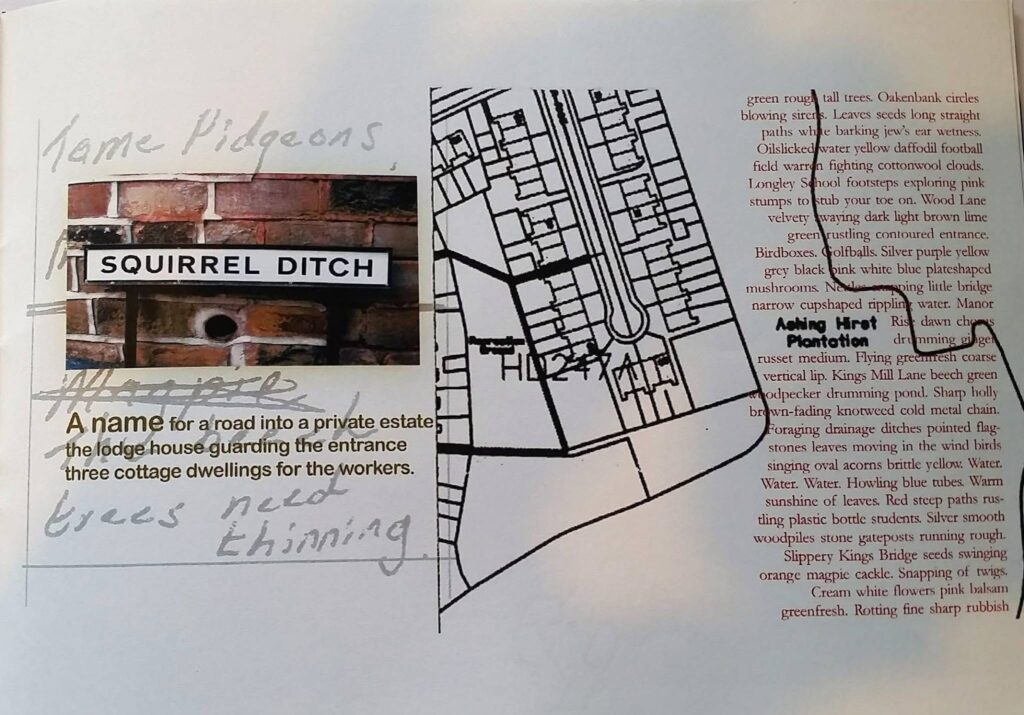 Tame Pidgeons.
SQUIRREL DITCH
Magpie
A name for a road into a private estate
the lodge house guarding the entrance
three cottage dwellings for the workers.
trees need
thinning.
Recreation
Ground
HD2474
green rough tall trees. Oakenbank circles
blowing sirens. Leaves seeds long straight
paths white barking jew's ear wetness.
Oilslicked water yellow daffodil football
field warren fighting cottonwool clouds.
Longley School footsteps exploring pink
stumps to stub your toe on. Wood Lane
velvety swaying dark light brown lime
green rustling contoured entrance.
Birdboxes. Golfballs. Silver purple yellow
grey black pink white blue plateshaped
mushrooms. Needles snapping little bridge
narrow cupshaped rippling water. Manor
Rise dawn chorus
drumming ginger
Ashing Hirst
Plantation
russet medium. Flying greenfresh coarse
vertical lip. Kings Mill Lane beech green
woodpecker drumming pond. Sharp holly
brown-fading knotweed cold metal chain.
Foraging drainage ditches pointed flag-
stones leaves moving in the wind birds
singing oval acorns brittle yellow. Water.
Water. Water. Howling blue tubes. Warm
sunshine of leaves. Red steep paths rus-
tling plastic bottle students. Silver smooth
woodpiles stone gateposts running rough.
Slippery Kings Bridge seeds swinging
orange magpie cackle. Snapping of twigs.
Cream white flowers pink balsam
greenfresh. Rotting fine sharp rubbish